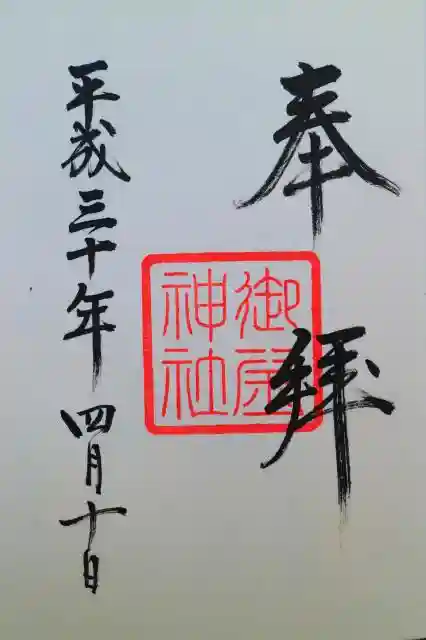 奉拝
御
神社
平成三十年 四月十日